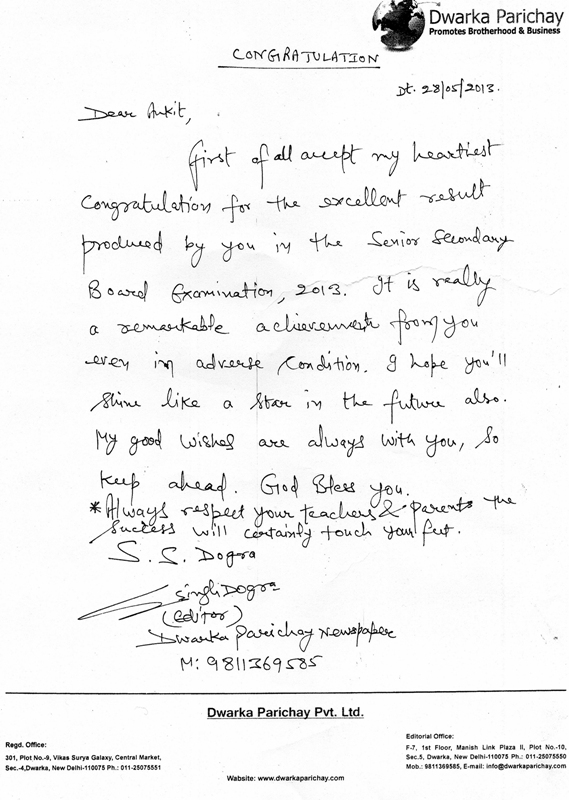 Dwarka Parichay
Promotes Brotherhood & Business
CONGRATULATION
Dt. 28/05/2013.
Dear Ankit,
First of all accept my heartiest
Congratulation for the excellent result
produced by you in the Senior Secondary
Board Examination, 2013. It is really
a remarkable achievement from you
even in adverse Condition. I hope you'll
shine like a star in the future also.
My good wishes are always with you, so
keep ahead. God Bless you.
*Always respect your teachers & parents the
success will certainly touch your feet.
S. S. Dogra
SinghDogra
(Editor)
Dwarka Parichay Newspaper
M: 9811369585
Dwarka Parichay Pvt. Ltd.
Regd. Office:
301, Plot No.-9, Vikas Surya Galaxy, Central Market,
Sec.-4,Dwarka, New Delhi-110075 Ph.: 011-25075551
Editorial Office:
F-7, 1st Floor, Manish Link Plaza II, Plot No.-10,
Sec.5, Dwarka, New Delhi-110075 Ph.: 011-25075550
Mob.: 9811369585, E-mail: info@dwarkaparichay.com
Website: www.dwarkaparichay.com